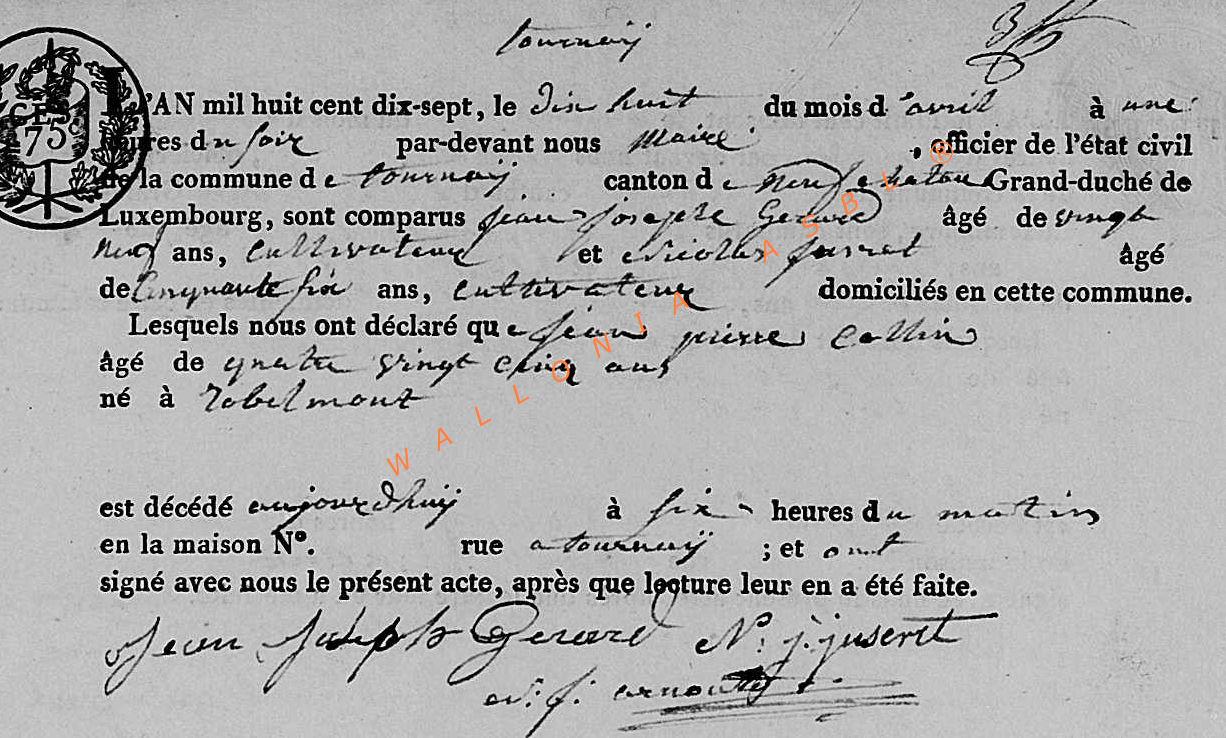 tournaij
CES
75c
L'AN mil huit cent dix-sept, le dix huit du mois d'avril à une
heures du soir par-devant nous Maire , officier de l'état civil
de la commune de tournaij canton de Neufchateau Grand-duché de
Luxembourg, sont comparus jean joseph Gerard âgé de vingt
neuf ans, cultivateur et Nicolas âgé
de Cinquante six ans, cultivateur domiciliés en cette commune.
Lesquels nous ont déclaré que jean pierre Collin
âgé de quatre vingt cinq ans
né à robelmont
est décédé aujourdhuij à six heures du matin
en la maison N°. rue a tournaij ; et ont
signé avec nous le présent acte, après que lecture leur en a été faite.
Jean Joseph Gerard N: j: juseret
j. arnould
WALLONIA ASBL ©